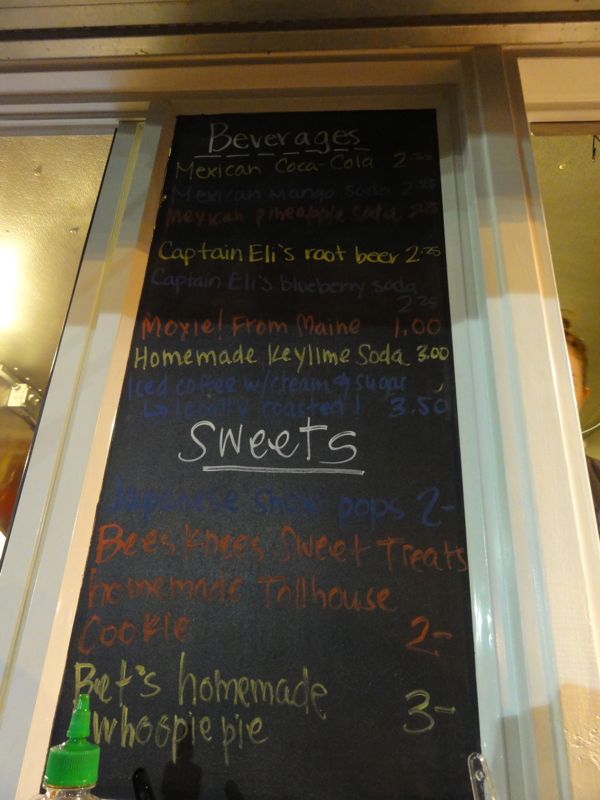 Beverages
Mexican Coca-Cola 2.25
Mexican Mango Soda 2.25
Mexican pineapple soda 2.25
Captain Eli's root beer 2.25
Captain Eli's blueberry soda
2.25
Moxie! From Maine 1.00
Homemade Keylime Soda 3.00
Iced coffee w/cream & sugar
↳ locally roasted! 3.50
Sweets
Japanese snow pops 2-
Bees Knees Sweet Treats
homemade Tollhouse
Cookie 2-
homemade 3-
whoopie pie